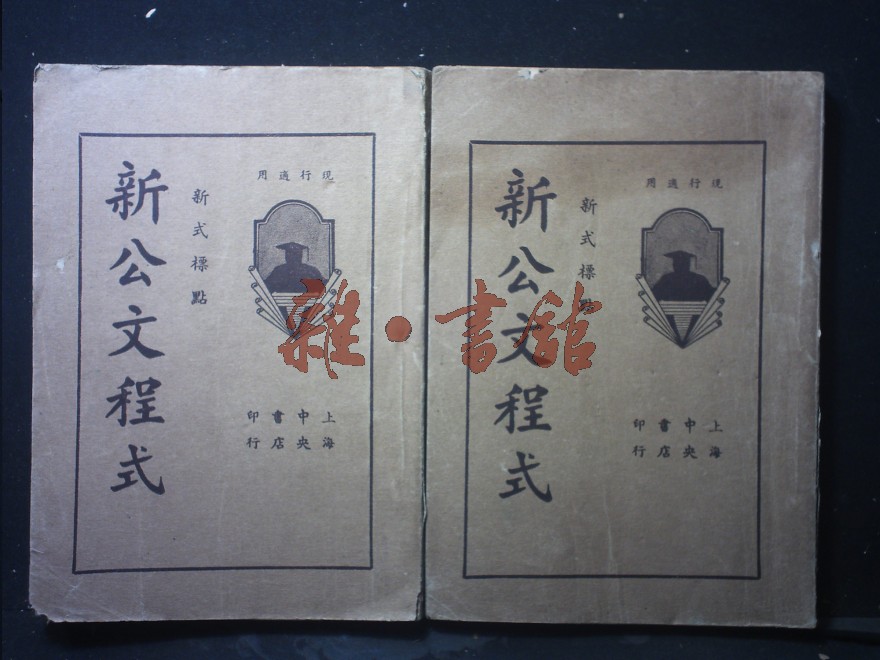 現行適用
新式標點
新公文程式
上海
中央
書店
印行
現行適用
新式標點
新公文程式
上海
中央
書店
印行
雜·書舘